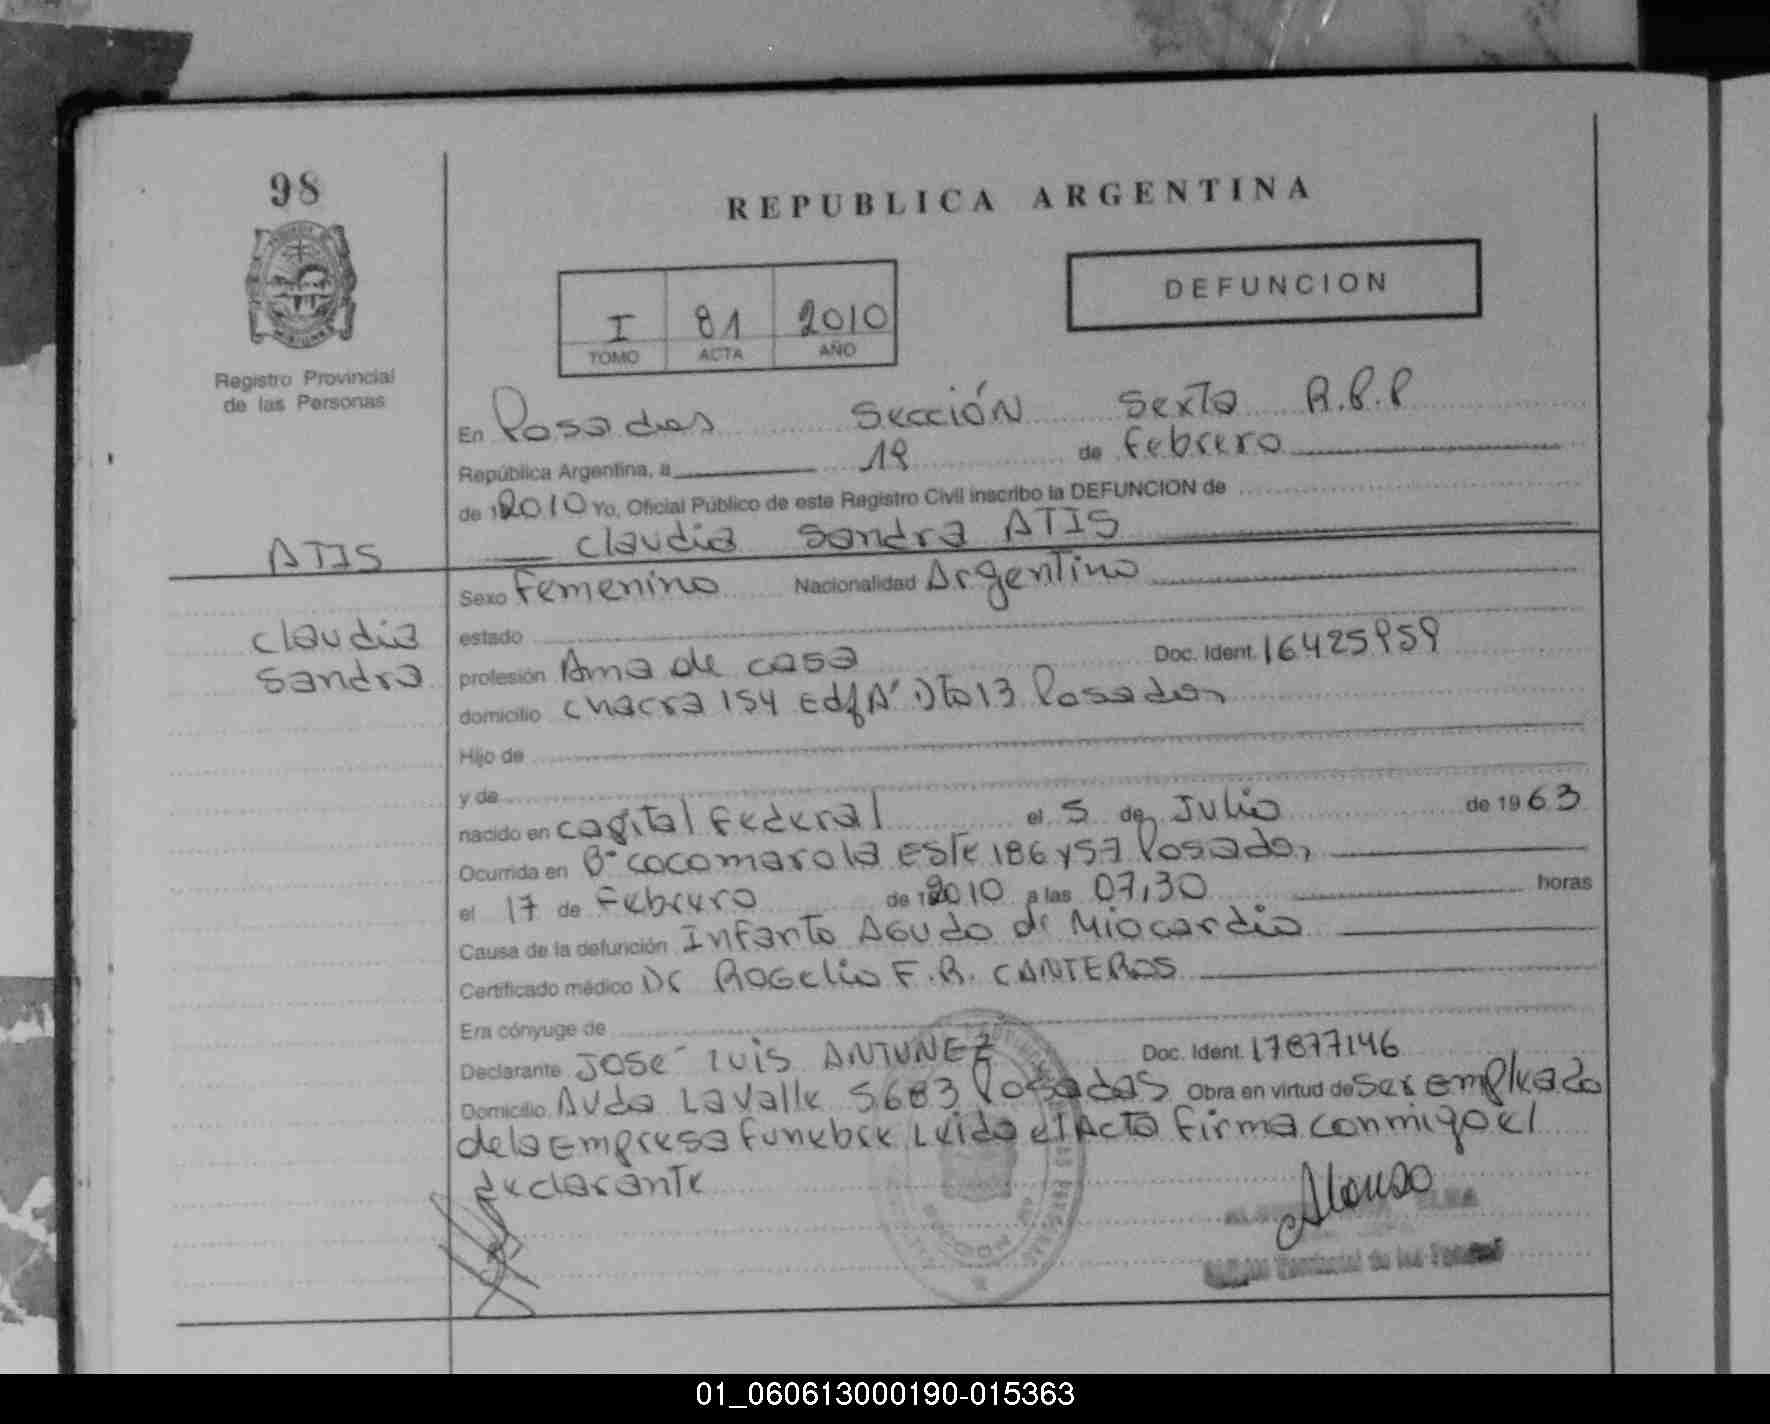 98
REPUBLICA ARGENTINA
DEFUNCION
I 81 2010
TOMO ACTA AÑO
Registro Provincial
de las Personas
En Posadas Sección Sexta R.P.P
República Argentina, a 18 de Febrero
de 12010 Yo, Oficial Público de este Registro Civil inscribo la DEFUNCION de
Claudia Sandra ATIS
ATIS
Claudia
Sandra
Sexo Femenino Nacionalidad Argentino
estado
profesión Ama de casa Doc. Ident. 16425959
domicilio Chacra 154 Edf A' Dto 13 Posadas
Hijo de
y de
nacido en Capital Federal el 5 de Julio de 1963
Ocurrida en B° Cocomarola Este 186 y 57 Posadas
el 17 de Febrero de 12010 a las 07,30 horas
Causa de la defunción Infarto Agudo de Miocardio
Certificado médico Dr ROGelio F.R. CANTEROS
Era cónyuge de
Declarante JOSE LUIS ANTUNEZ Doc. Ident. 17877146
Domicilio Avda Lavalle 5683 Posadas Obra en virtud de ser empleado
de la Empresa Funebre Leida el Acta Firma conmigo el
declarante
Alonso
Territorial de las
01_060613000190-015363